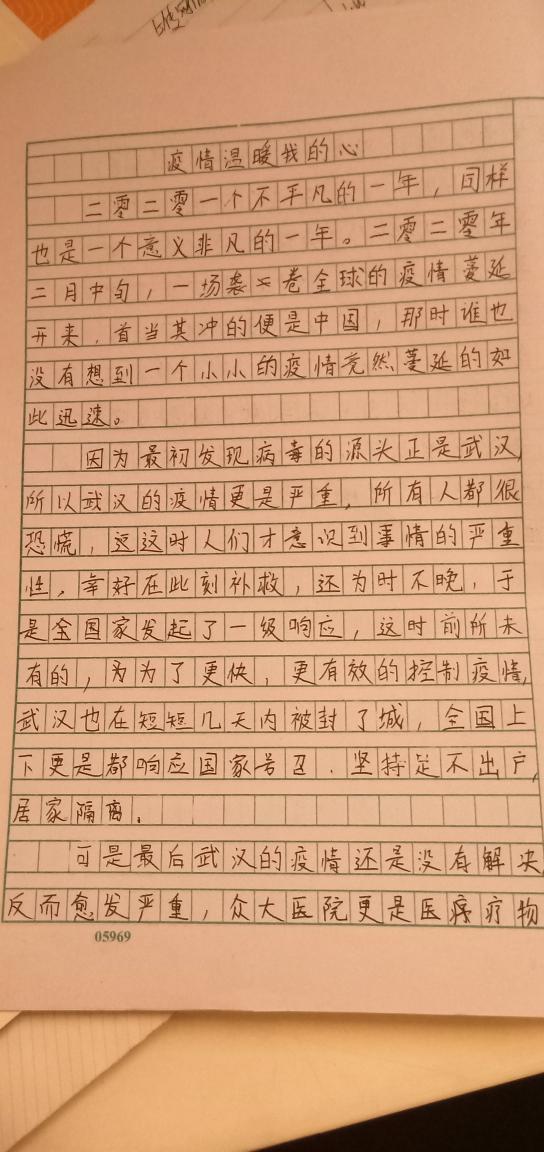 疫情温暖我的心
二零二零一个不平凡的一年，同样
也是一个意义非凡的一年。二零二零年
二月中旬，一场袭卷全球的疫情蔓延
开来，首当其冲的便是中国，那时谁也
没有想到一个小小的疫情竞然蔓延的如
此迅速。
因为最初发现病毒的源头正是武汉，
所以武汉的疫情更是严重，所有人都很
恐慌，这这时人们才意识到事情的严重
性，幸好在此刻补救，还为时不晚，于
是全国家发起了一级响应，这时前所未
有的，为为了更快，更有效的控制疫情，
武汉也在短短几天内被封了城，全国上
下更是都响应国家号召．坚持足不出户，
居家隔离．
可是最后武汉的疫情还是没有解决，
反而愈发严重，众大医院更是医疗疗物
05969